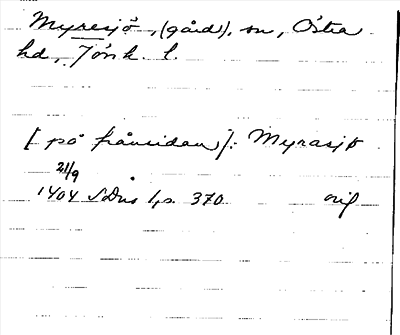 Myresjö, (gård), sn, Östra
hd, Jönk. l.
[på frånsidan]: Myrasjö
21/9
1404 SDns 1, s. 370 orig